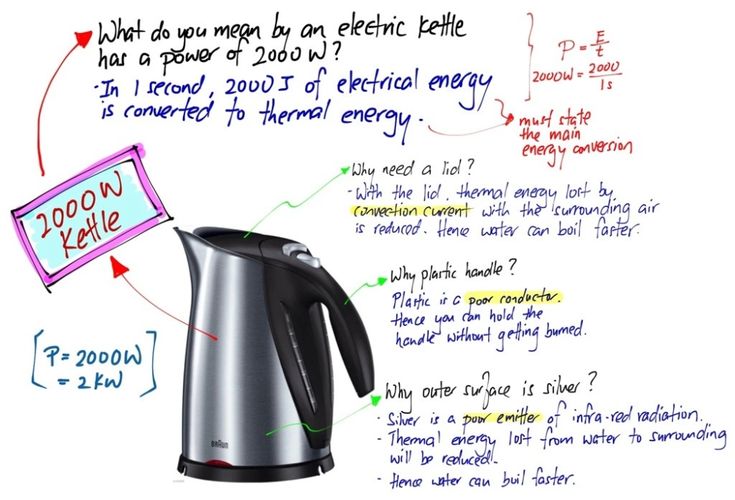 What do you mean by an electric kettle
has a power of 2000W?
· In 1 second, 2000J of electrical energy
is converted to thermal energy.
P = E/t
2000W = 2000/1s
must state
the main
energy conversion
2000W
Kettle
Why need a lid?
- With the lid, thermal energy lost by
convection current with the surrounding air
is reduced. Hence water can boil faster.
Why plastic handle?
Plastic is a poor conductor.
Hence you can hold the
handle without getting burned.
[P = 2000W
= 2kW]
Why outer surface is silver?
- Silver is a poor emitter of infra-red radiation.
- Thermal energy lost from water to surrounding
will be reduced.
- Hence water can boil faster.
BRAUN